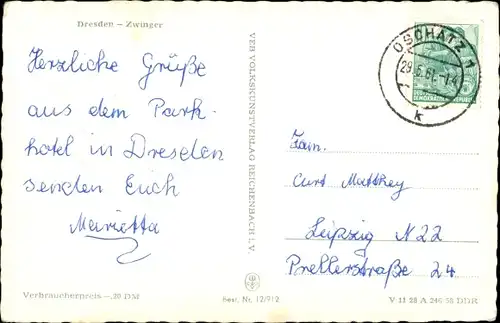 Dresden – Zwinger
Herzliche Grüße
aus dem Park-
hotel in Dresden
senden Euch
Marietta
Verbraucherpreis –.20 DM
VEB VOLKSKUNSTVERLAG REICHENBACH I. V.
Best. Nr. 12/912
OSCHATZ 1
k
Fam.
Curt Matthey
Leipzig N 22
Prellerstraße 24
V 11 28 A 246 58 DDR